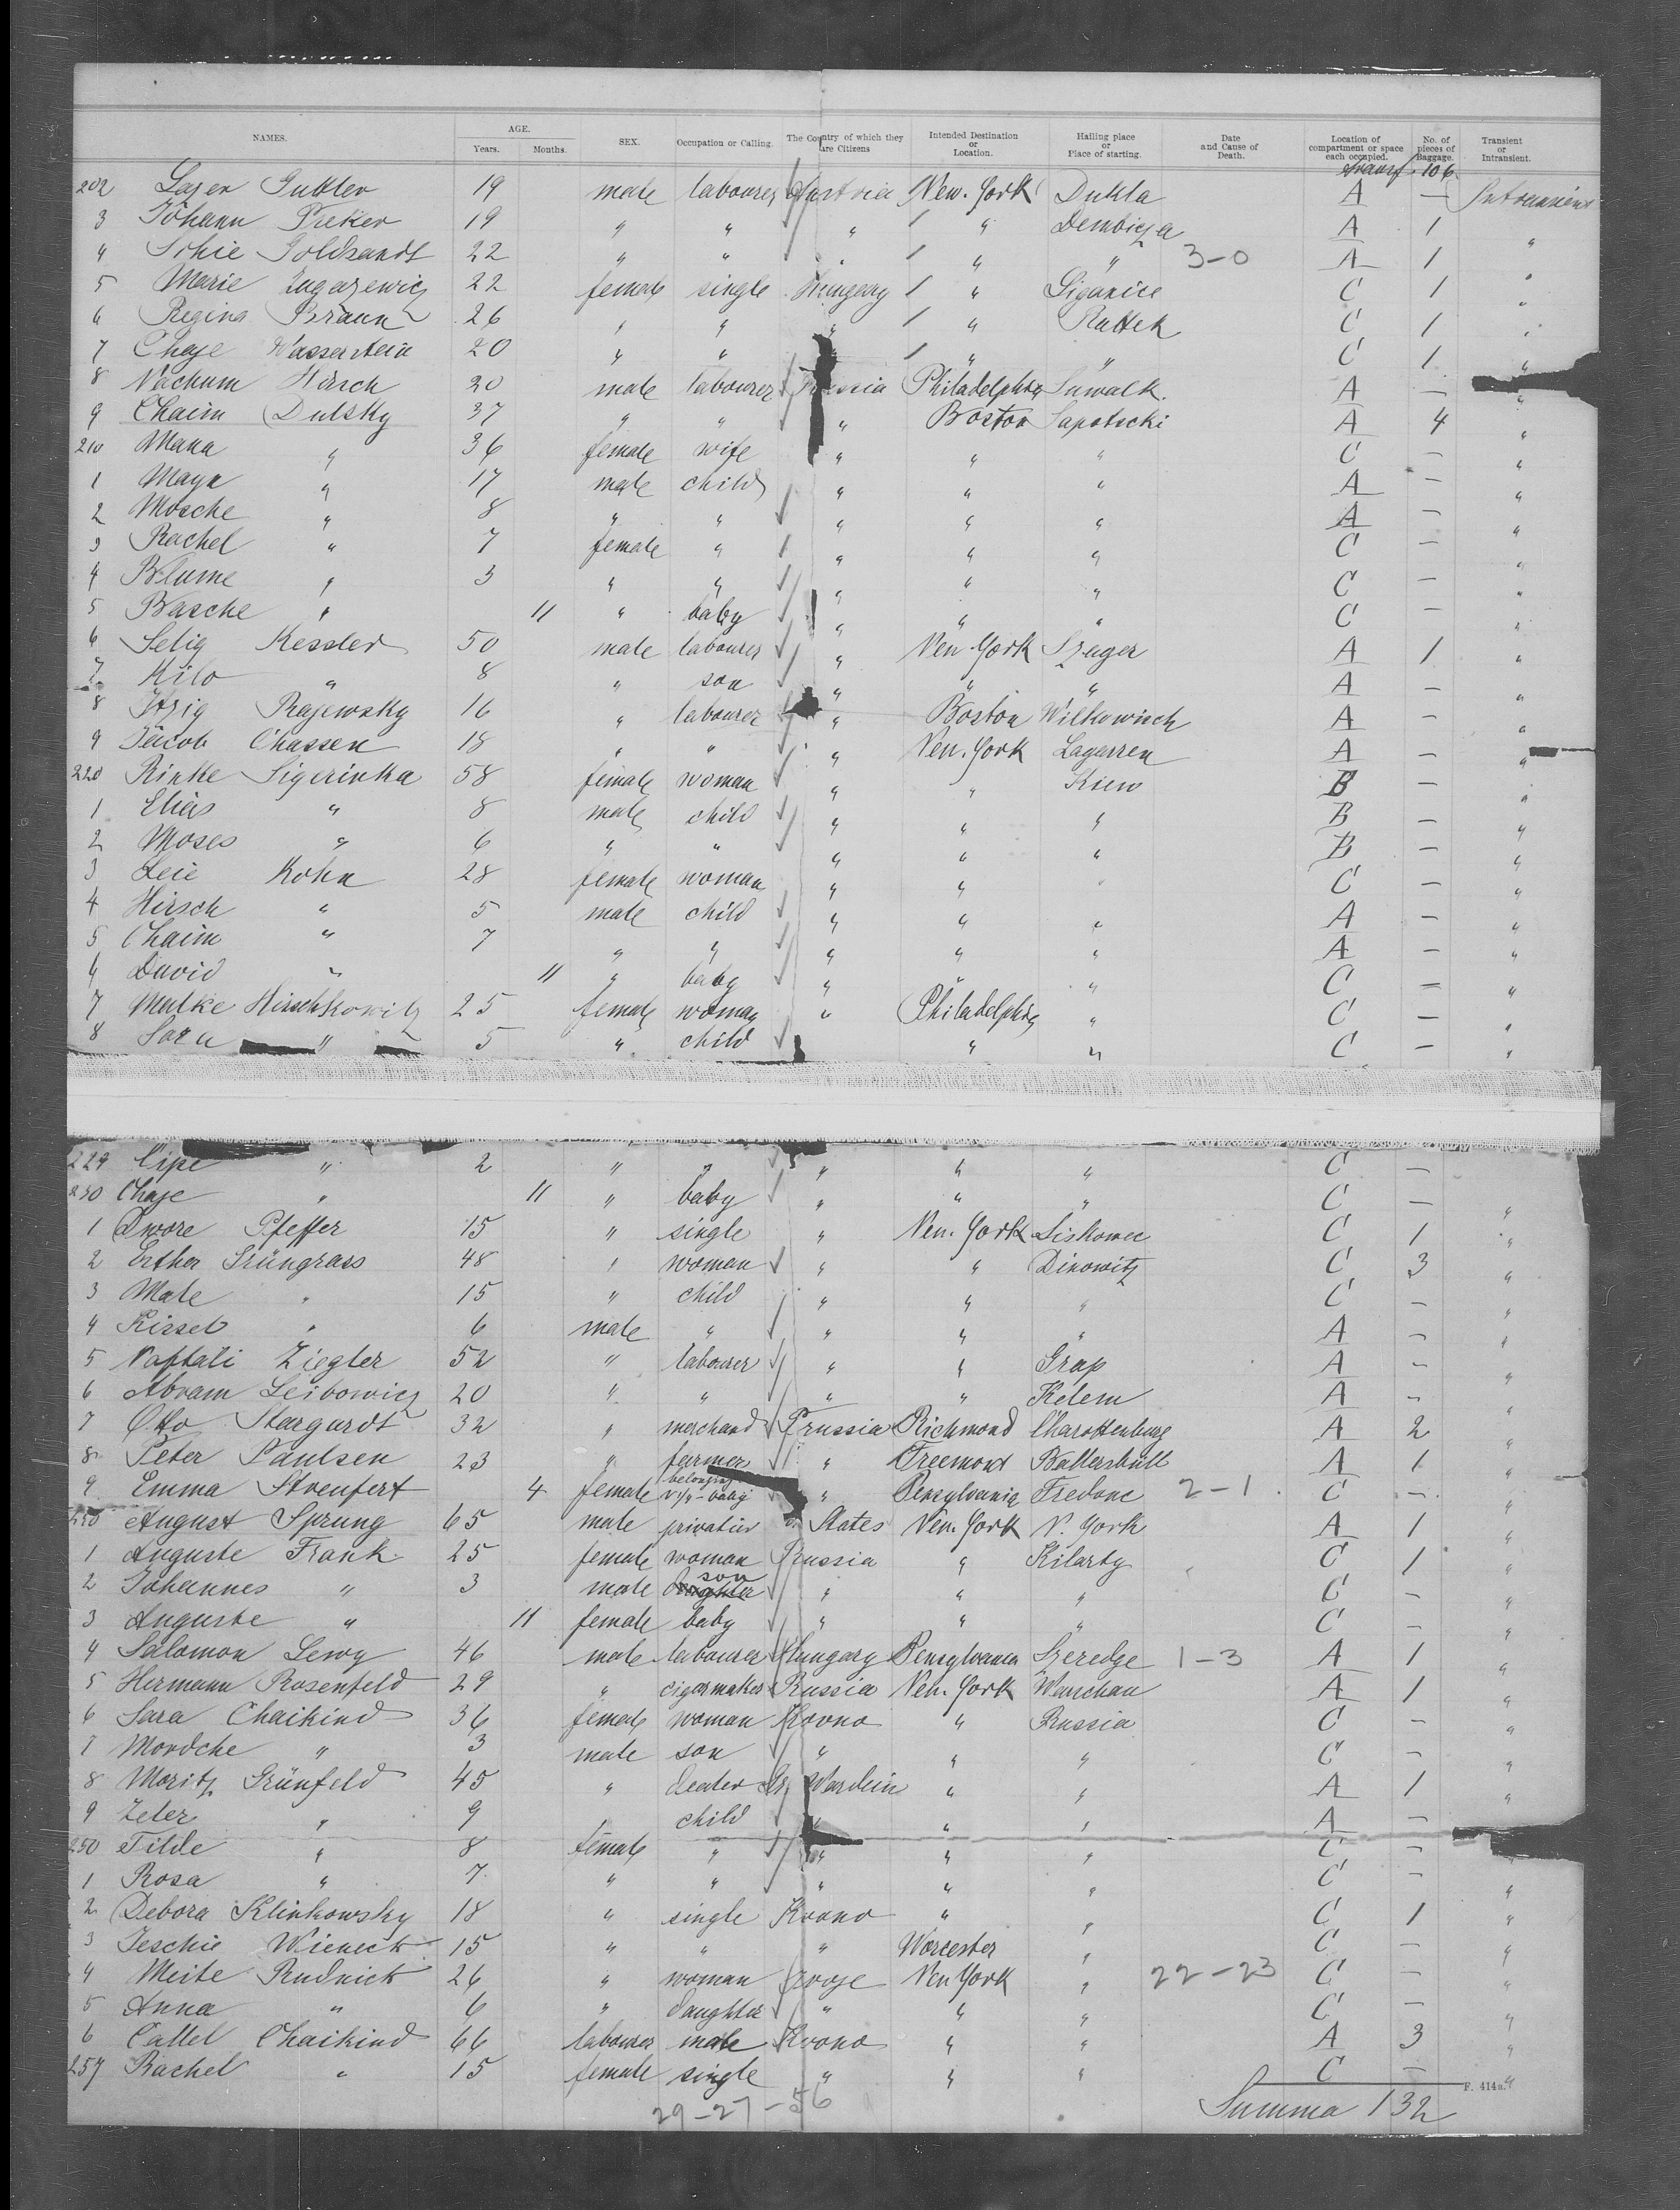 NAMES. AGE. Years. Months. SEX. Occupation or Calling. The Country of which they are Citizens Intended Destination or Location. Hailing place or Place of starting. Date and Cause of Death. Location of compartment or space each occupied. No. of pieces of Baggage. Transient or Intransient.
transf. 106
202 Lazer Gubler 19 male labourer Austria New. York Dukla A —
3 Johann Preker 19 " " " " Dembicza A 1 "
4 Schie Goldsandt 22 " " " " " 3-0 A 1 "
5 Marie 22 female single Hungary " C 1 "
6 Regina Braun 26 " " " " Rattek C 1 "
7 Chaje Wasserstein 20 " " " " " C 1 "
8 Nachum Hirsch 20 male labourer Russia Philadelphia Suwalk. A — "
9 Chaim Dulsky 37 " " " Boston Sapotschi A 4 "
210 Mana " 36 female wife " " " C — "
1 Maya " 17 male child " " " A — "
2 Mosche " 8 " " " " " A — "
3 Rachel " 7 female " " " " C — "
4 Blume " 3 " " " " " C — "
5 Basche " 11 " baby " " " C — "
6 Selig Kessler 50 male labourer " New York Szager A 1 "
7 Hilo " 8 " son " " " A — "
8 Itzig Rajewsky 16 " labourer " Boston Wilkowisch A — "
9 Jacob Chassen 18 " " " New. York Lagarren A — "
220 Rinke Sigerinka 58 female woman " " Kiew B — "
1 Elias " 8 male child " " " B — "
2 Moses " 6 " " " " " B — "
3 Leie Kohn 28 female woman " " " C — "
4 Hirsch " 5 male child " " " A — "
5 Chaim " 7 " " " " " A — "
6 David " 11 " baby " " " C — "
7 Malke Hirschkowitz 25 female woman " Philadelphia " C — "
8 Sara " 5 " child " " C — "
229 Cipe " 2 " " " " " C —
230 Chaje " 11 " baby " " " C — "
1 Dwore Pfeffer 15 " single " New. York Liskowec C 1 "
2 Esther Grüngrass 48 " woman " " Dinowitz C 3 "
3 Male " 15 " child " " " C — "
4 Kissel " 6 male " " " " A — "
5 Naftali Ziegler 52 " labourer " " Grap A — "
6 Abram Leibowicz 20 " " " " Kelem A — "
7 Otto Stargardt 32 " merchand Prussia Richmond Charottenburg A 2 "
8 Peter Paulsen 23 " farmer " Treemont Ballersbüll A 1 "
9 Emma Streufert 4 female belonging baby " Pensylvania Fredonc 2-1 C — "
August Sprung 65 male privatier States New. York N. York A 1 "
1 Auguste Frank 25 female woman Prussia " Kilarty C 1 "
2 Johannes " 3 male son daughter " " " C — "
3 Auguste " 11 female baby " " " C — "
4 Salomon Lewy 46 male labourer Hungary Pensylvania Szeredge 1-3 A 1 "
5 Hermann Rosenfeld 29 " cigarmaker Russia New. York Warschau A 1 "
6 Sara Chaikind 36 female woman Kovno " Russia C — "
7 Mordche " 3 male son " " " C — "
8 Moritz Grünfeld 45 " dealer Gr. Wardein " " A 1 "
9 Zeler " 9 " child " " " A —
250 Tilde " 8 female " " " " C — "
1 Rosa " 7 " " " " " C — "
2 Debora Klinkowsky 18 " single Kovno " " C 1 "
3 Jeschie Wieneck 15 " " " Worcester " C — "
4 Meite Rudnick 26 " woman New York " 22-23 C — "
5 Anna " 6 " daughter " " " C — "
6 Callel Chaikind 66 labourer male Kovno " " A 3 "
257 Rachel " 15 female single " " " C — "
F. 414a.
29-27-56
Summa 132